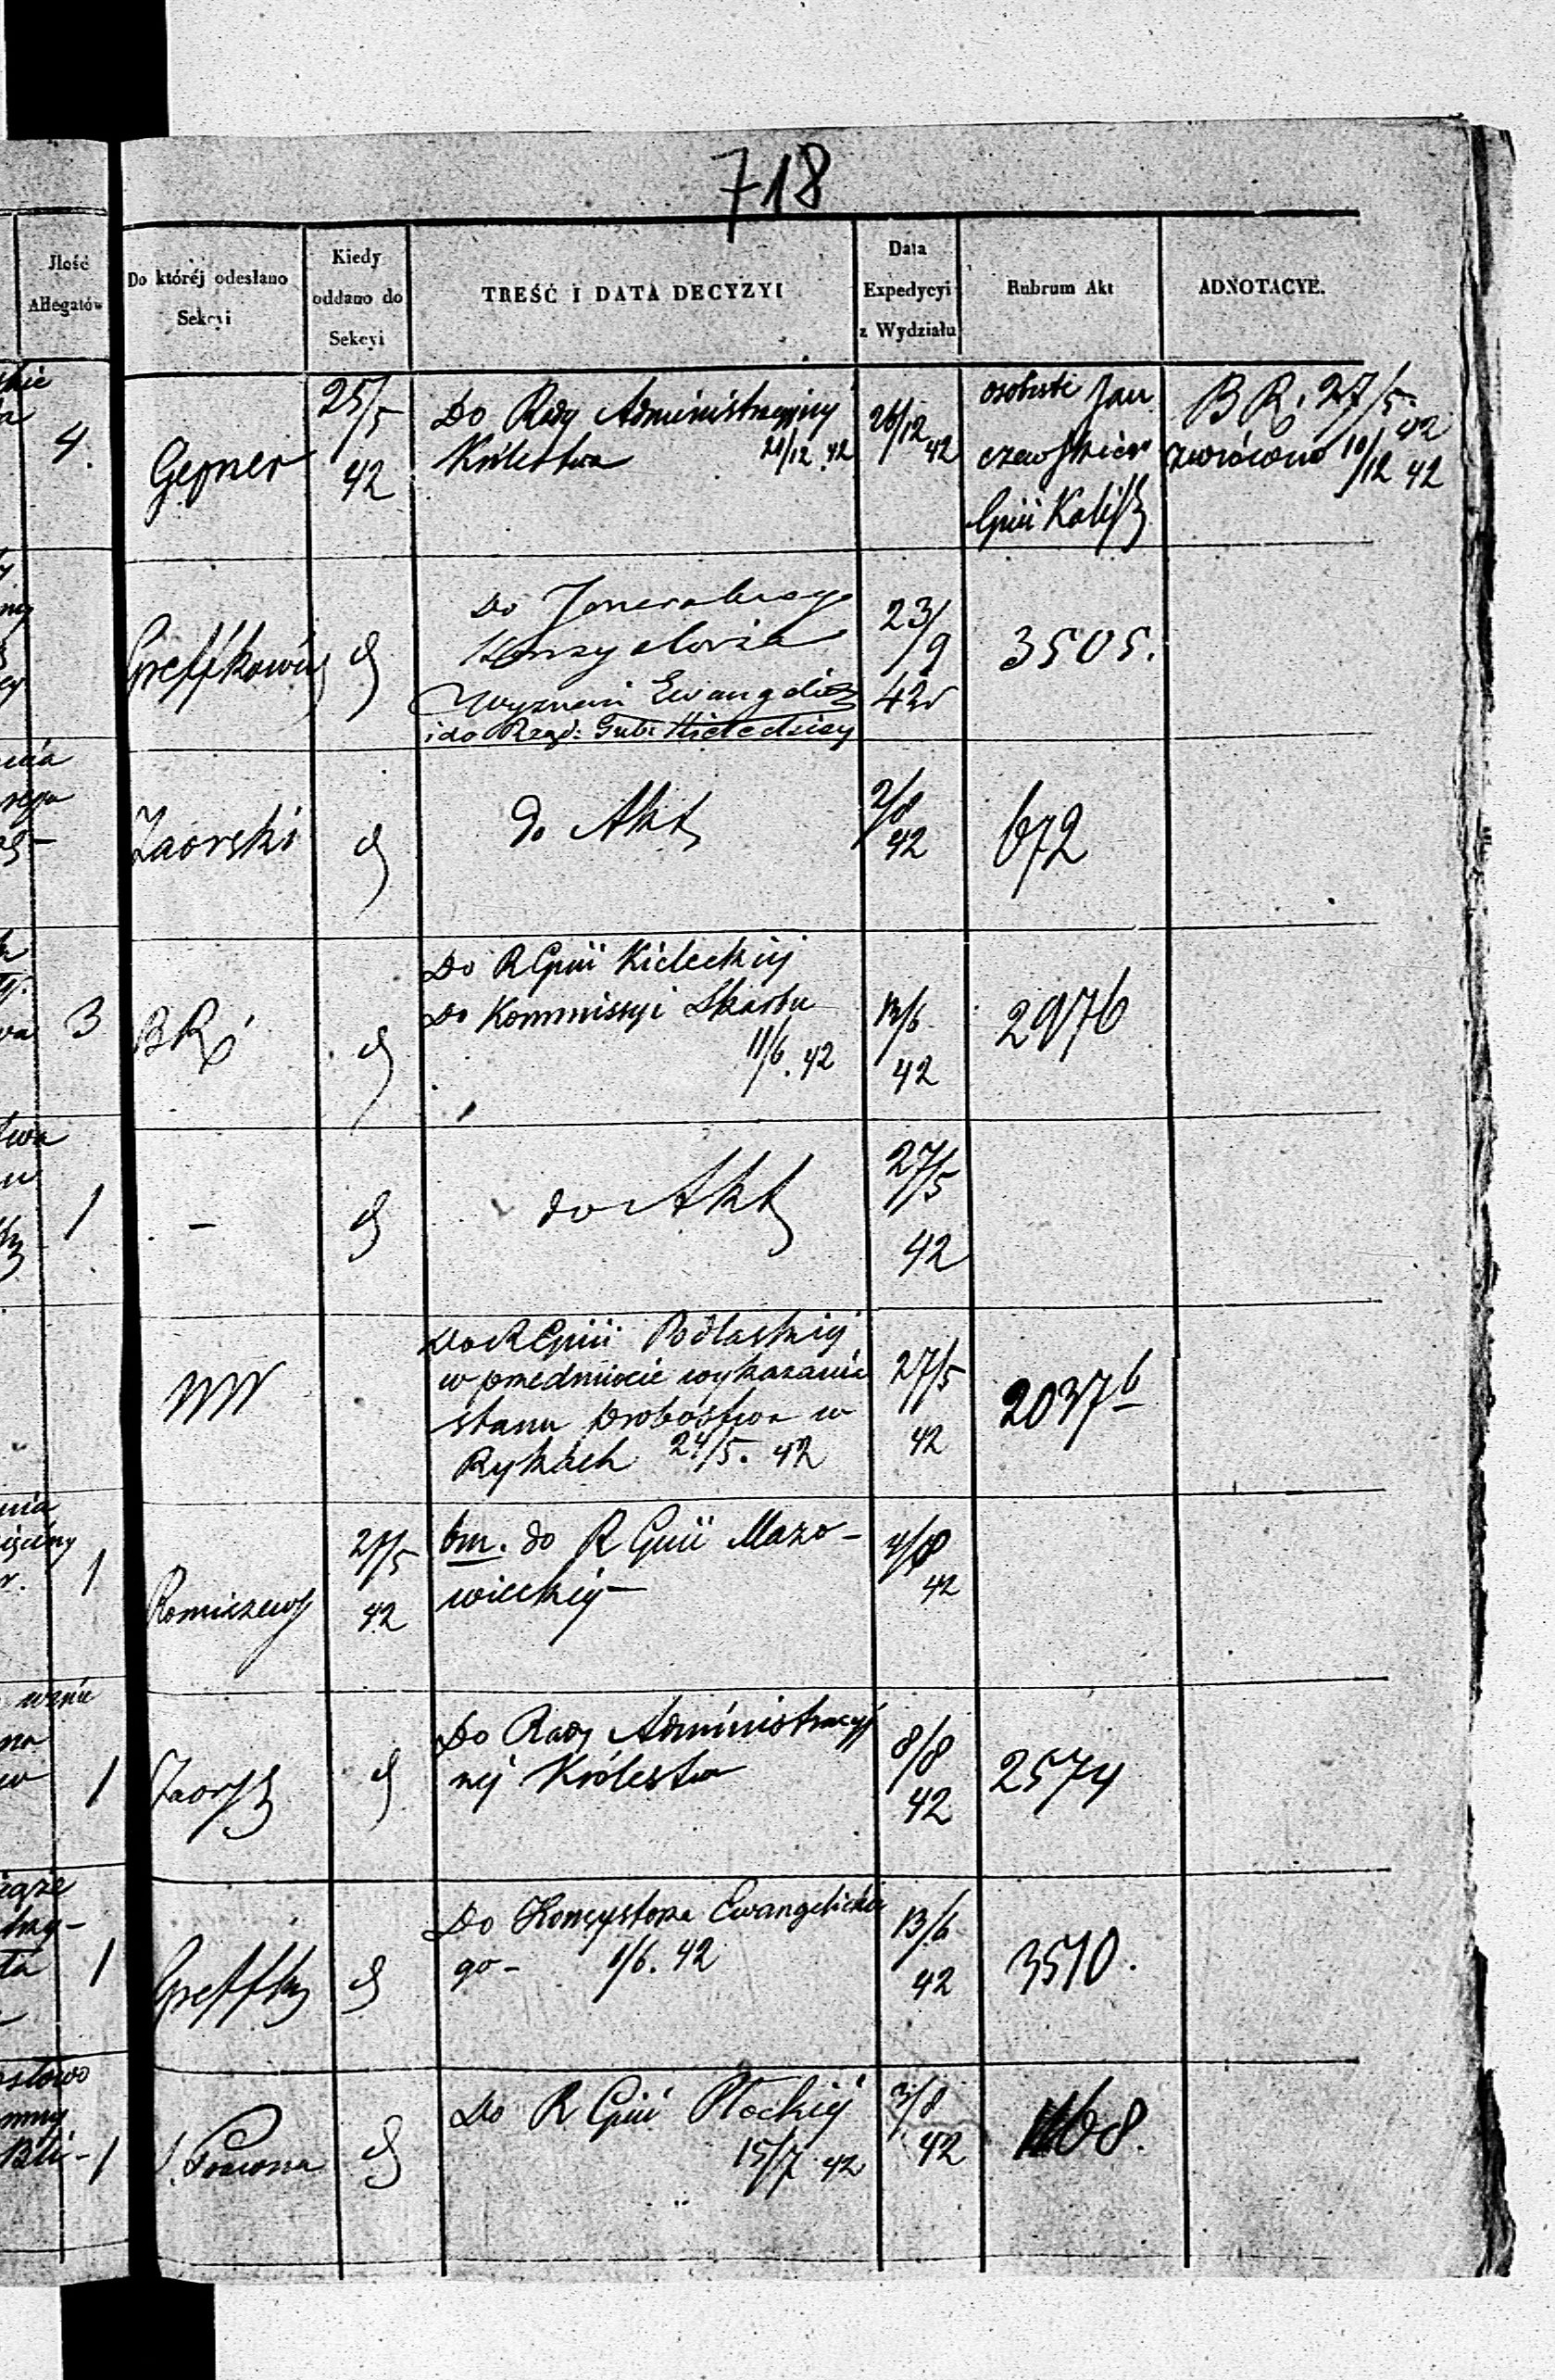 718
Ilość
Allegatów
Do któréj odesłano
Sekcyi
Kiedy
oddano do
Sekcyi
TREŚĆ I DATA DECYZYI
Data
Expedycyi
z Wydziału
Rubrum Akt
ADNOTACYE.
4.
Gepner
25/5
42
Do Rady Administracyjnej
Królestwa 21/12 42
28/12 42
osobiste Jan
czewskiego
Gpii Kalisk
B R. 27/5 42
zwrócono 10/12 42
Greffkowicz
d
Do Jeneralnego
Konsystorza
Wyznań Ewangelic
i do Rząd: Gub: Kieleckiey
23/9
42
3505.
Zaorski
d
do Akt
2/8
42
672
3
BR
d
Do RGpii Kieleckiej
Do Kommissyi Skarbu
11/6. 42
13/6
42
2976
1
-
d
do Akt
27/5
42
Do RGpii Podlaskiej
w przedmiocie wykazania
stanu probostwa w
Rykach 24/5. 42
27/5
42
2037 b
1
Romiszews
25/5
42
bm. do R Gpii Mazo-
wieckiej
4/8
42
1
Zaorsk
d
Do Rady Administracyj
nej Królestwa
8/8
42
2574
1
Greffk
d
Do Konsystorza Ewangelickie
go - 1/6. 42
13/6
42
3510.
1
Prawna
d
Do R Gpii Płockiej
15/7 42
3/8
42
1168.